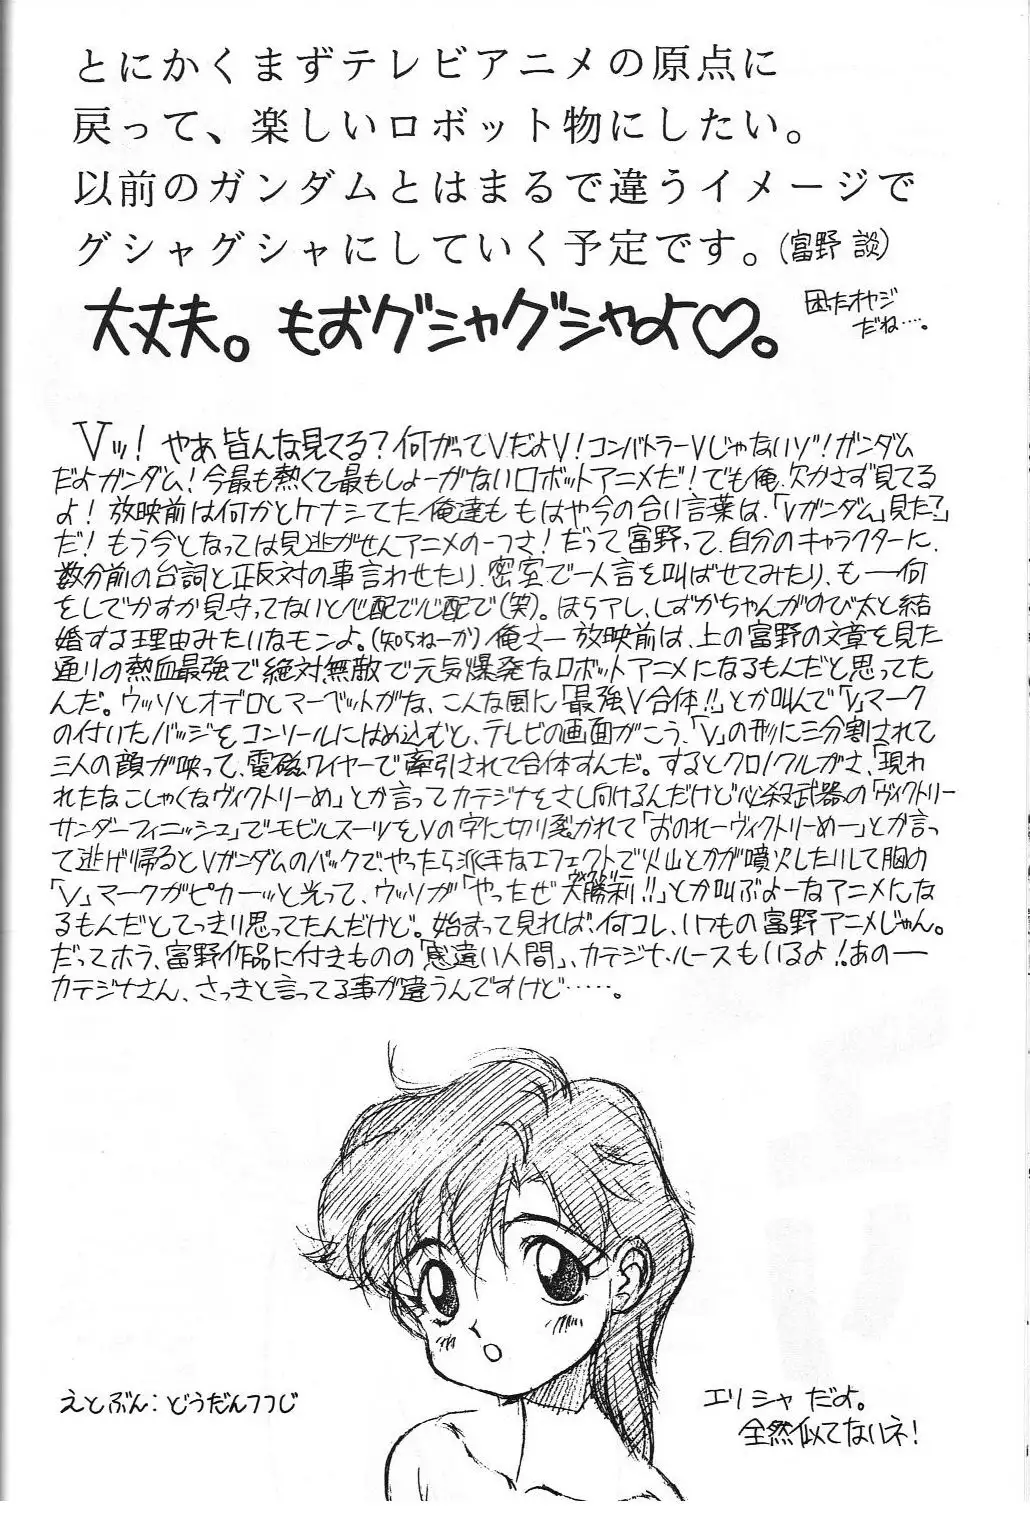 とにかくまずテレビアニメの原点に
戻って、楽しいロボット物にしたい。
以前のガンダムとはまるで違うイメージで
グシャグシャにしていく予定です。(富野 談)
大丈夫。もおグシャグシャよ♡。
困ったオヤジ
だね….。
Vッ! やあ皆んな見てる?何がってVだよV!コンバトラーVじゃないゾ!ガンダム
だよガンダム!今最も熱くて最もしょーがないロボットアニメだ!でも俺、欠かさず見てる
よ! 放映前は何かとケナシてた俺達も もはや今の合い言葉は、「Vガンダム」見た?」
だ!もう今となっては見逃がせんアニメの一つさ!だって富野って、自分のキャラクターに、
数分前の台詞と正反対の事言わせたり、密室で一人言を叫ばせてみたり、も──何
をしでかすか見守ってないと心配で心配で(笑)。ほらアレ、しずかちゃんがのび太と結
婚する理由みたいなモンよ。(知らねーか)俺さー 放映前は、上の富野の文章を見た
通りの熱血最強で絶対無敵で元気爆発なロボットアニメになるもんだと思ってた
んだ。ウッソとオデロとマーベットがな、こんな風に「最強V合体!!」とか叫んで「V」マーク
の付いたバッジをコンソールにはめ込むと、テレビの画面がこう、「V」の形に三分割されて
三人の顔が映って、電磁ワイヤーで牽引されて合体すんだ。するとクロノクルがさ、「現わ
れたなこしゃくなヴィクトリーめ」とか言ってカテジナをさし向けるんだけど必殺武器の「ヴィクトリー
サンダーフィニッシュ」でモビルスーツをVの字に切り裂かれて「おのれーヴィクトリーめー」とか言っ
て逃げ帰るとVガンダムのバックで、やったら派手なエフェクトで火山とかが噴火したりして胸の
「V」マークがピカーッと光って、ウッソが「やったぜ大勝利!!」とか叫ぶよーなアニメにな
るもんだとてっきり思ってたんだけど。始まって見れば、何コレ、いつもの富野アニメじゃん。
だってホラ、富野作品に付きものの「感違い人間」、カテジナ・ルースもいるよ!あの──
カテジナさん、さっきと言ってる事が違うんですけど……。
えとぶん:どうだんつつじ
エリシャ だよ。
全然似てないネ!